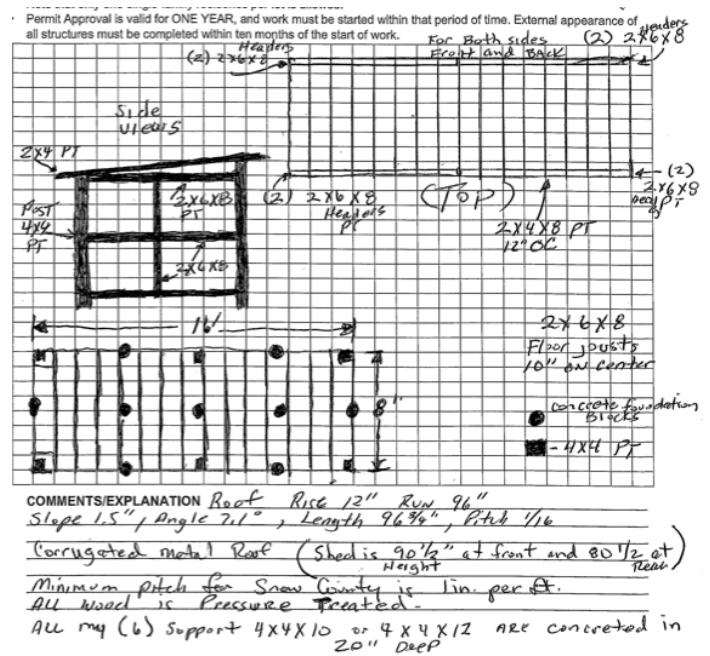 · Permit Approval is valid for ONE YEAR, and work must be started within that period of time. External appearance of
all structures must be completed within ten months of the start of work.
Headers
(2) 2x6x8
For Both sides
Front and BACK
Headers
(2) 2x6x8
Side
views
2x4 PT
2x6x8
PT
POST
4x4
PT
2x6x8
(2) 2x6x8
Headers
PT
(TOP)
2x4x8 PT
12" OC
(2)
2x6x8
PT
16'
8"
2x6x8
Floor jousts
10" ON center
concrete foundation
Blocks
- 4x4 PT
COMMENTS/EXPLANATION Roof Rise 12" Run 96"
Slope 1.5", Angle 7.1°, Length 96 3/4", Pitch 1/16
Corrugated metal Roof (Shed is 90 1/2" at front and 80 1/2 at)
Height Rear
Minimum pitch for Snow County is 1in. per ft.
ALL Wood is Pressure Treated.
ALL my (6) Support 4x4x10 or 4x4x12 ARE concreted in
20" Deep